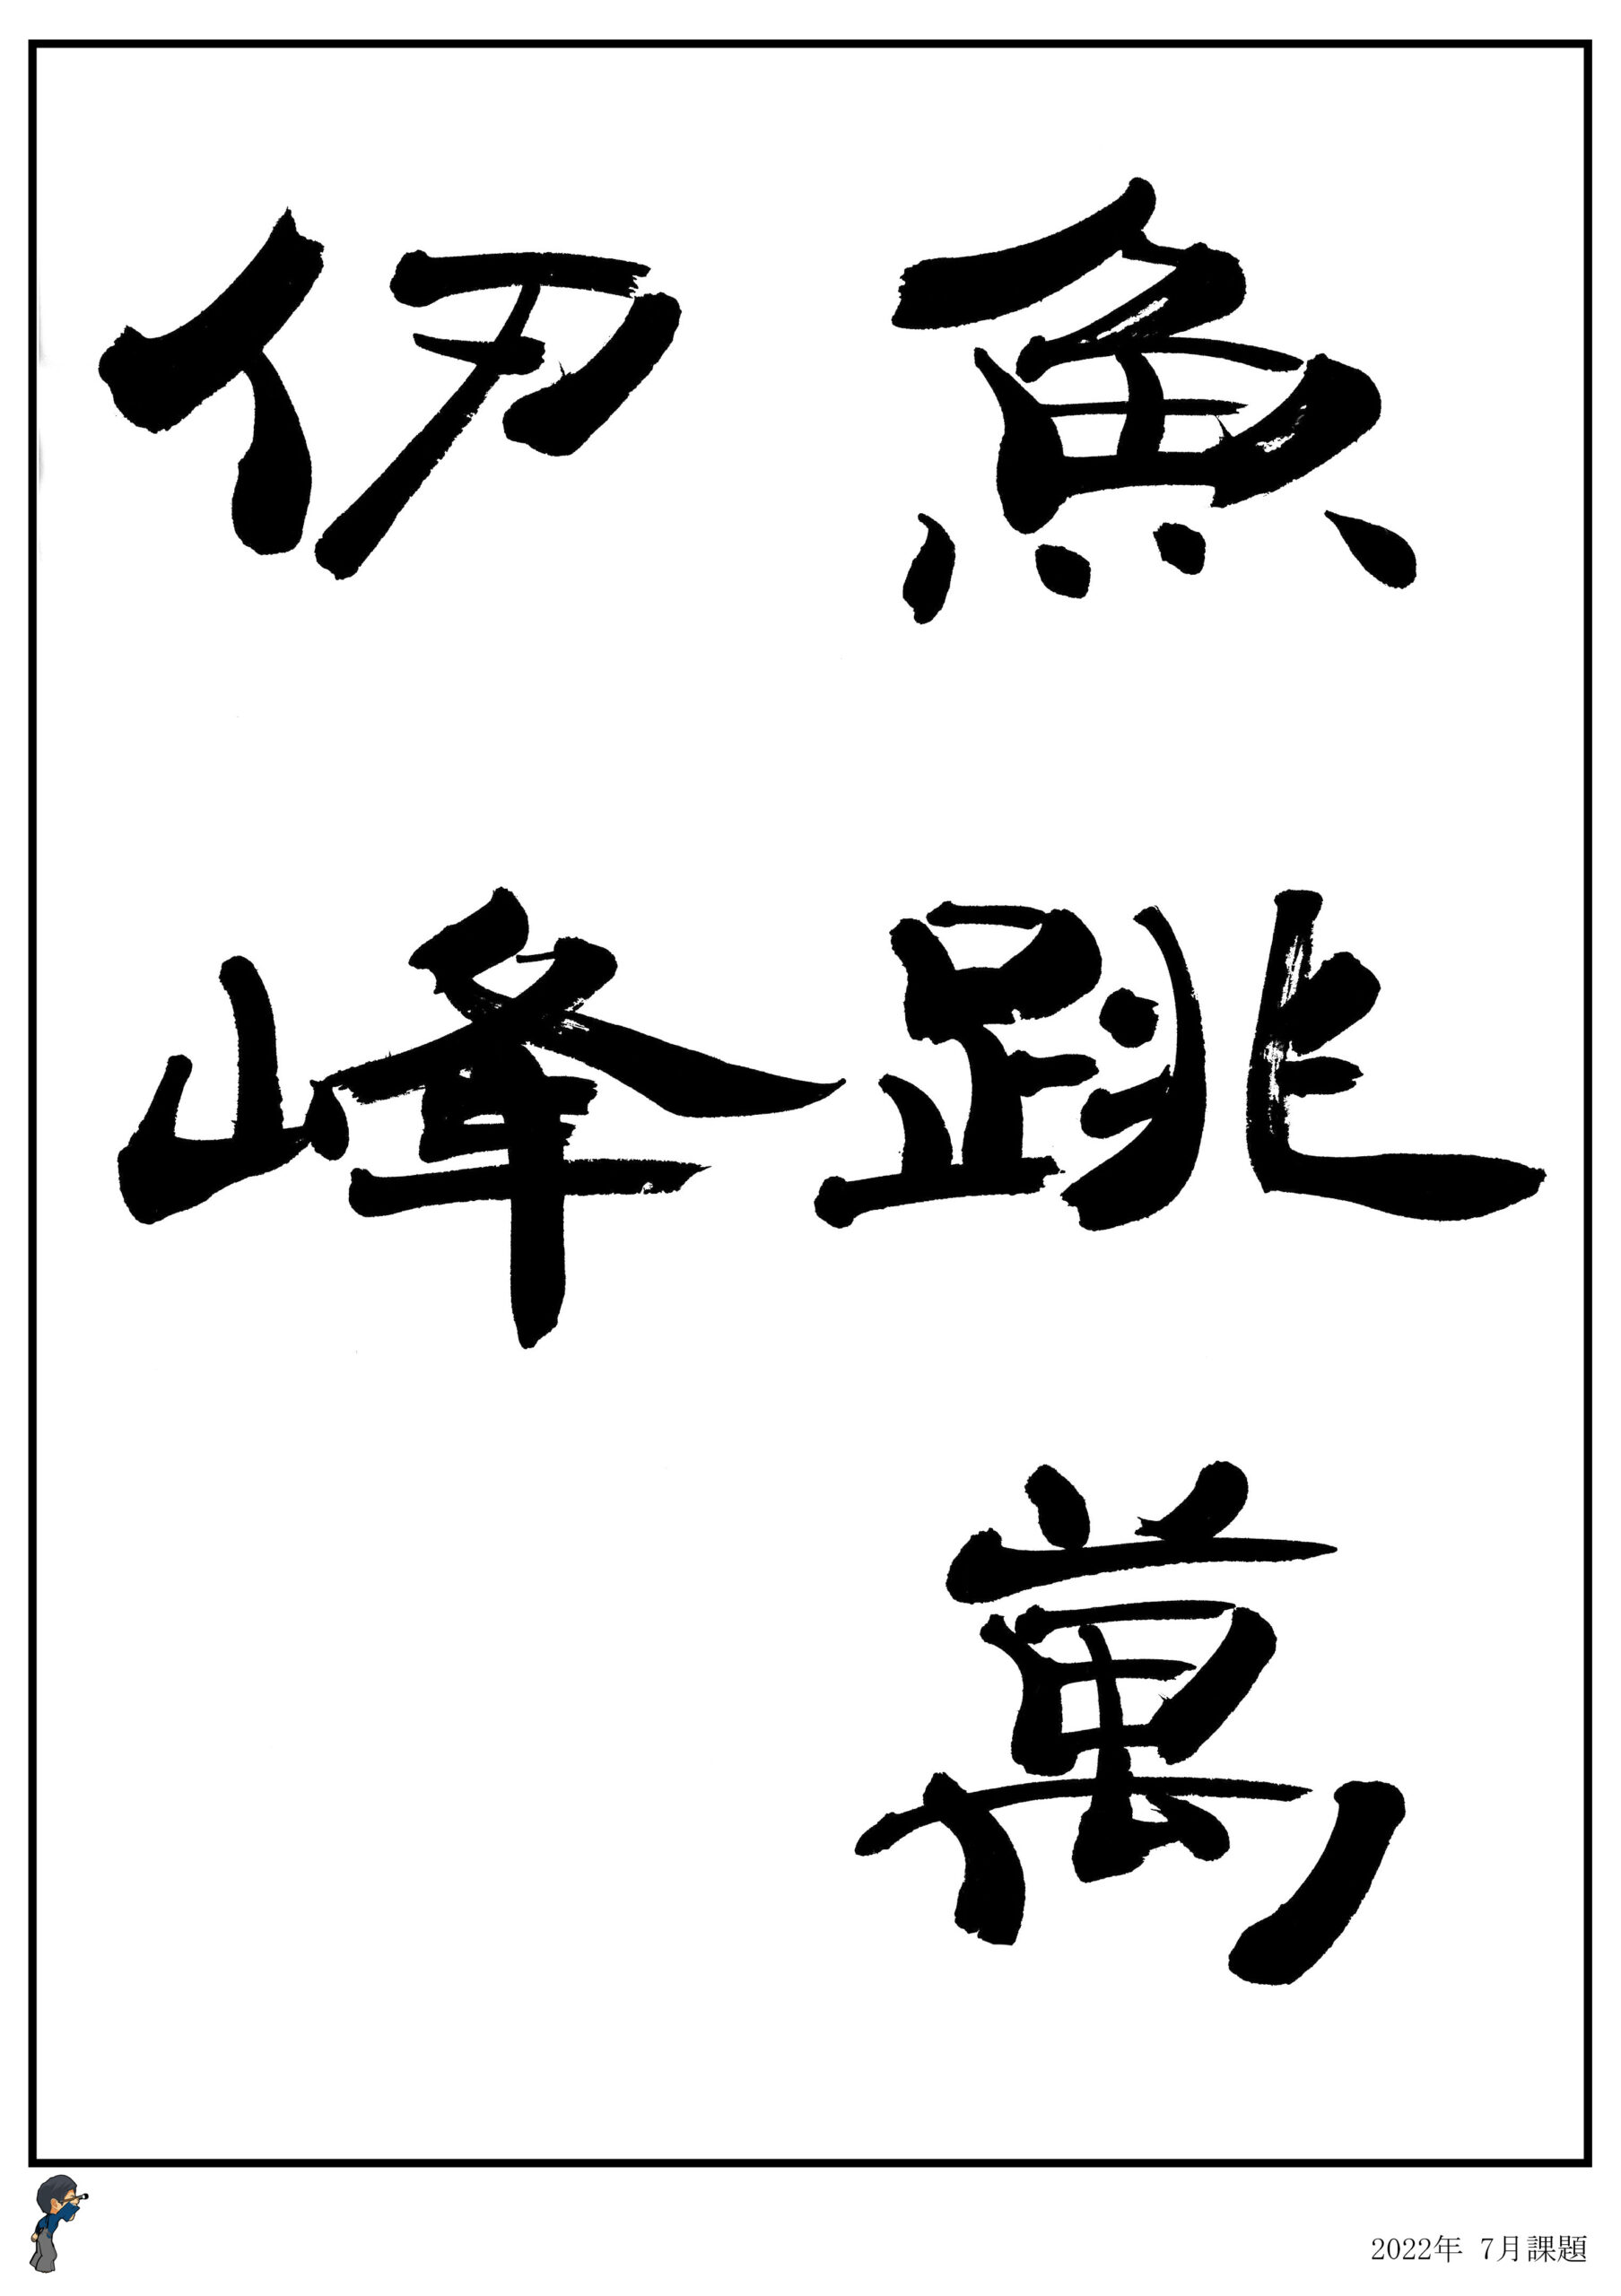 魚跳萬
伊峰
2022年 7月課題